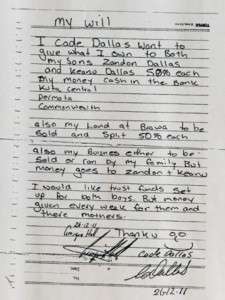 my will
I Code Dallas Want to
give what I own to Both
my Sons Zandon Dallas
and Keano Dallas 50% each
My money Cash in the Bank
Kuta Central
Permata
Commonwelth
also my Land at Brawa to be
Sold and Split 50% each
also my Busines either to be
sold or ran by my family But
money goes to Zandon + Keano
I would like trust funds set
up for both boys. But money
given every weak for them and
there mothers.
26-12-11
Thanku
Code Dallas
26-12-11